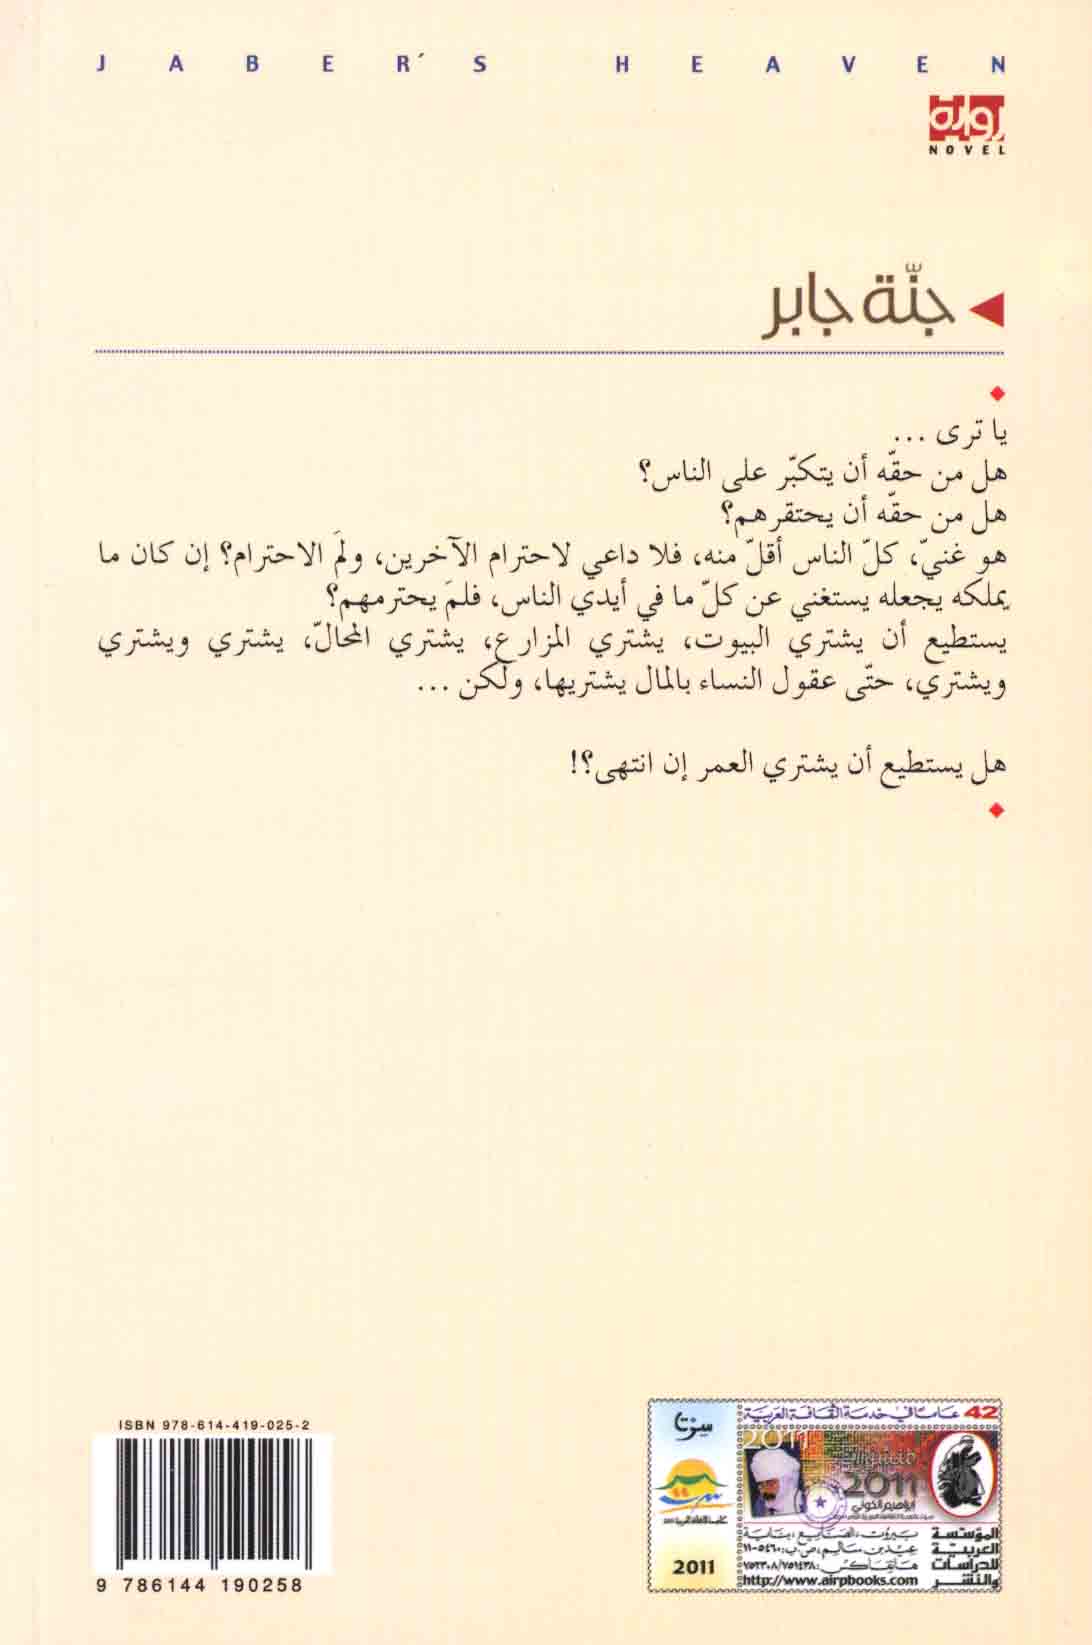 JABER'S HEAVEN
رواية
NOVEL
جنّة جابر
يا ترى ...
هل من حقّه أن يتكبّر على الناس؟
هل من حقّه أن يحتقرهم؟
هو غنيّ، كلّ الناس أقلّ منه، فلا داعي لاحترام الآخرين، ولمَ الاحترام؟ إن كان ما
يملكه يجعله يستغني عن كلّ ما في أيدي الناس، فلمَ يحترمهم؟
يستطيع أن يشتري البيوت، يشتري المزارع، يشتري المحالّ، يشتري ويشتري
ويشتري، حتّى عقول النساء بالمال يشتريها، ولكن ...
هل يستطيع أن يشتري العمر إن انتهى؟!
ISBN 978-614-419-025-2
9 786144 190258
42 عاماً في خدمة الثقافة العربية
2011
2011
إبراهيم الخولي
المؤسسة
العربية
للدراسات
والنشر
بيروت، الصنايع، بناية
عيد بن سالم، ص.ب: ٥٤٦٠-١١
هاتفاكس: ٧٥١٤٣٨/٧٥٢٣٠٨
http://www.airpbooks.com
سرت
2011